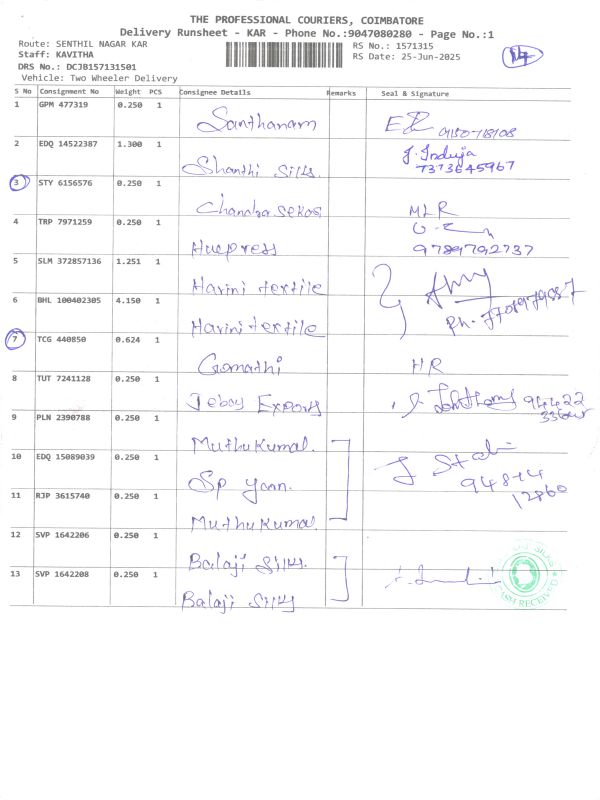 THE PROFESSIONAL COURIERS, COIMBATORE
Delivery Runsheet - KAR - Phone No.:9047080280 - Page No.:1
Route: SENTHIL NAGAR KAR
RS No.: 1571315
Staff: KAVITHA
RS Date: 25-Jun-2025
DRS No.: DCJB157131501
Vehicle: Two Wheeler Delivery
S No Consignment No Weight PCS Consignee Details Remarks Seal & Signature
1 GPM 477319 0.250 1 Santhanam
2 EDQ 14522387 1.300 1 Shanthi Silks. J. Induja
7373645967
3 STY 6156576 0.250 1 Chandra sekar MLR
4 TRP 7971259 0.250 1 Huepress 9789792737
5 SLM 372857136 1.251 1 Harini textile
6 BHL 100402305 4.150 1 Harini textile Ph.
7 TCG 440850 0.624 1 Gomathi HR
8 TUT 7241128 0.250 1 Jebas Exports 94422
9 PLN 2390788 0.250 1 Muthukumar.
10 EDQ 15089039 0.250 1 Sp yarn.
11 RJP 3615740 0.250 1 Muthukumar 12860
12 SVP 1642206 0.250 1 Balaji Silks.
13 SVP 1642208 0.250 1 Balaji Silks